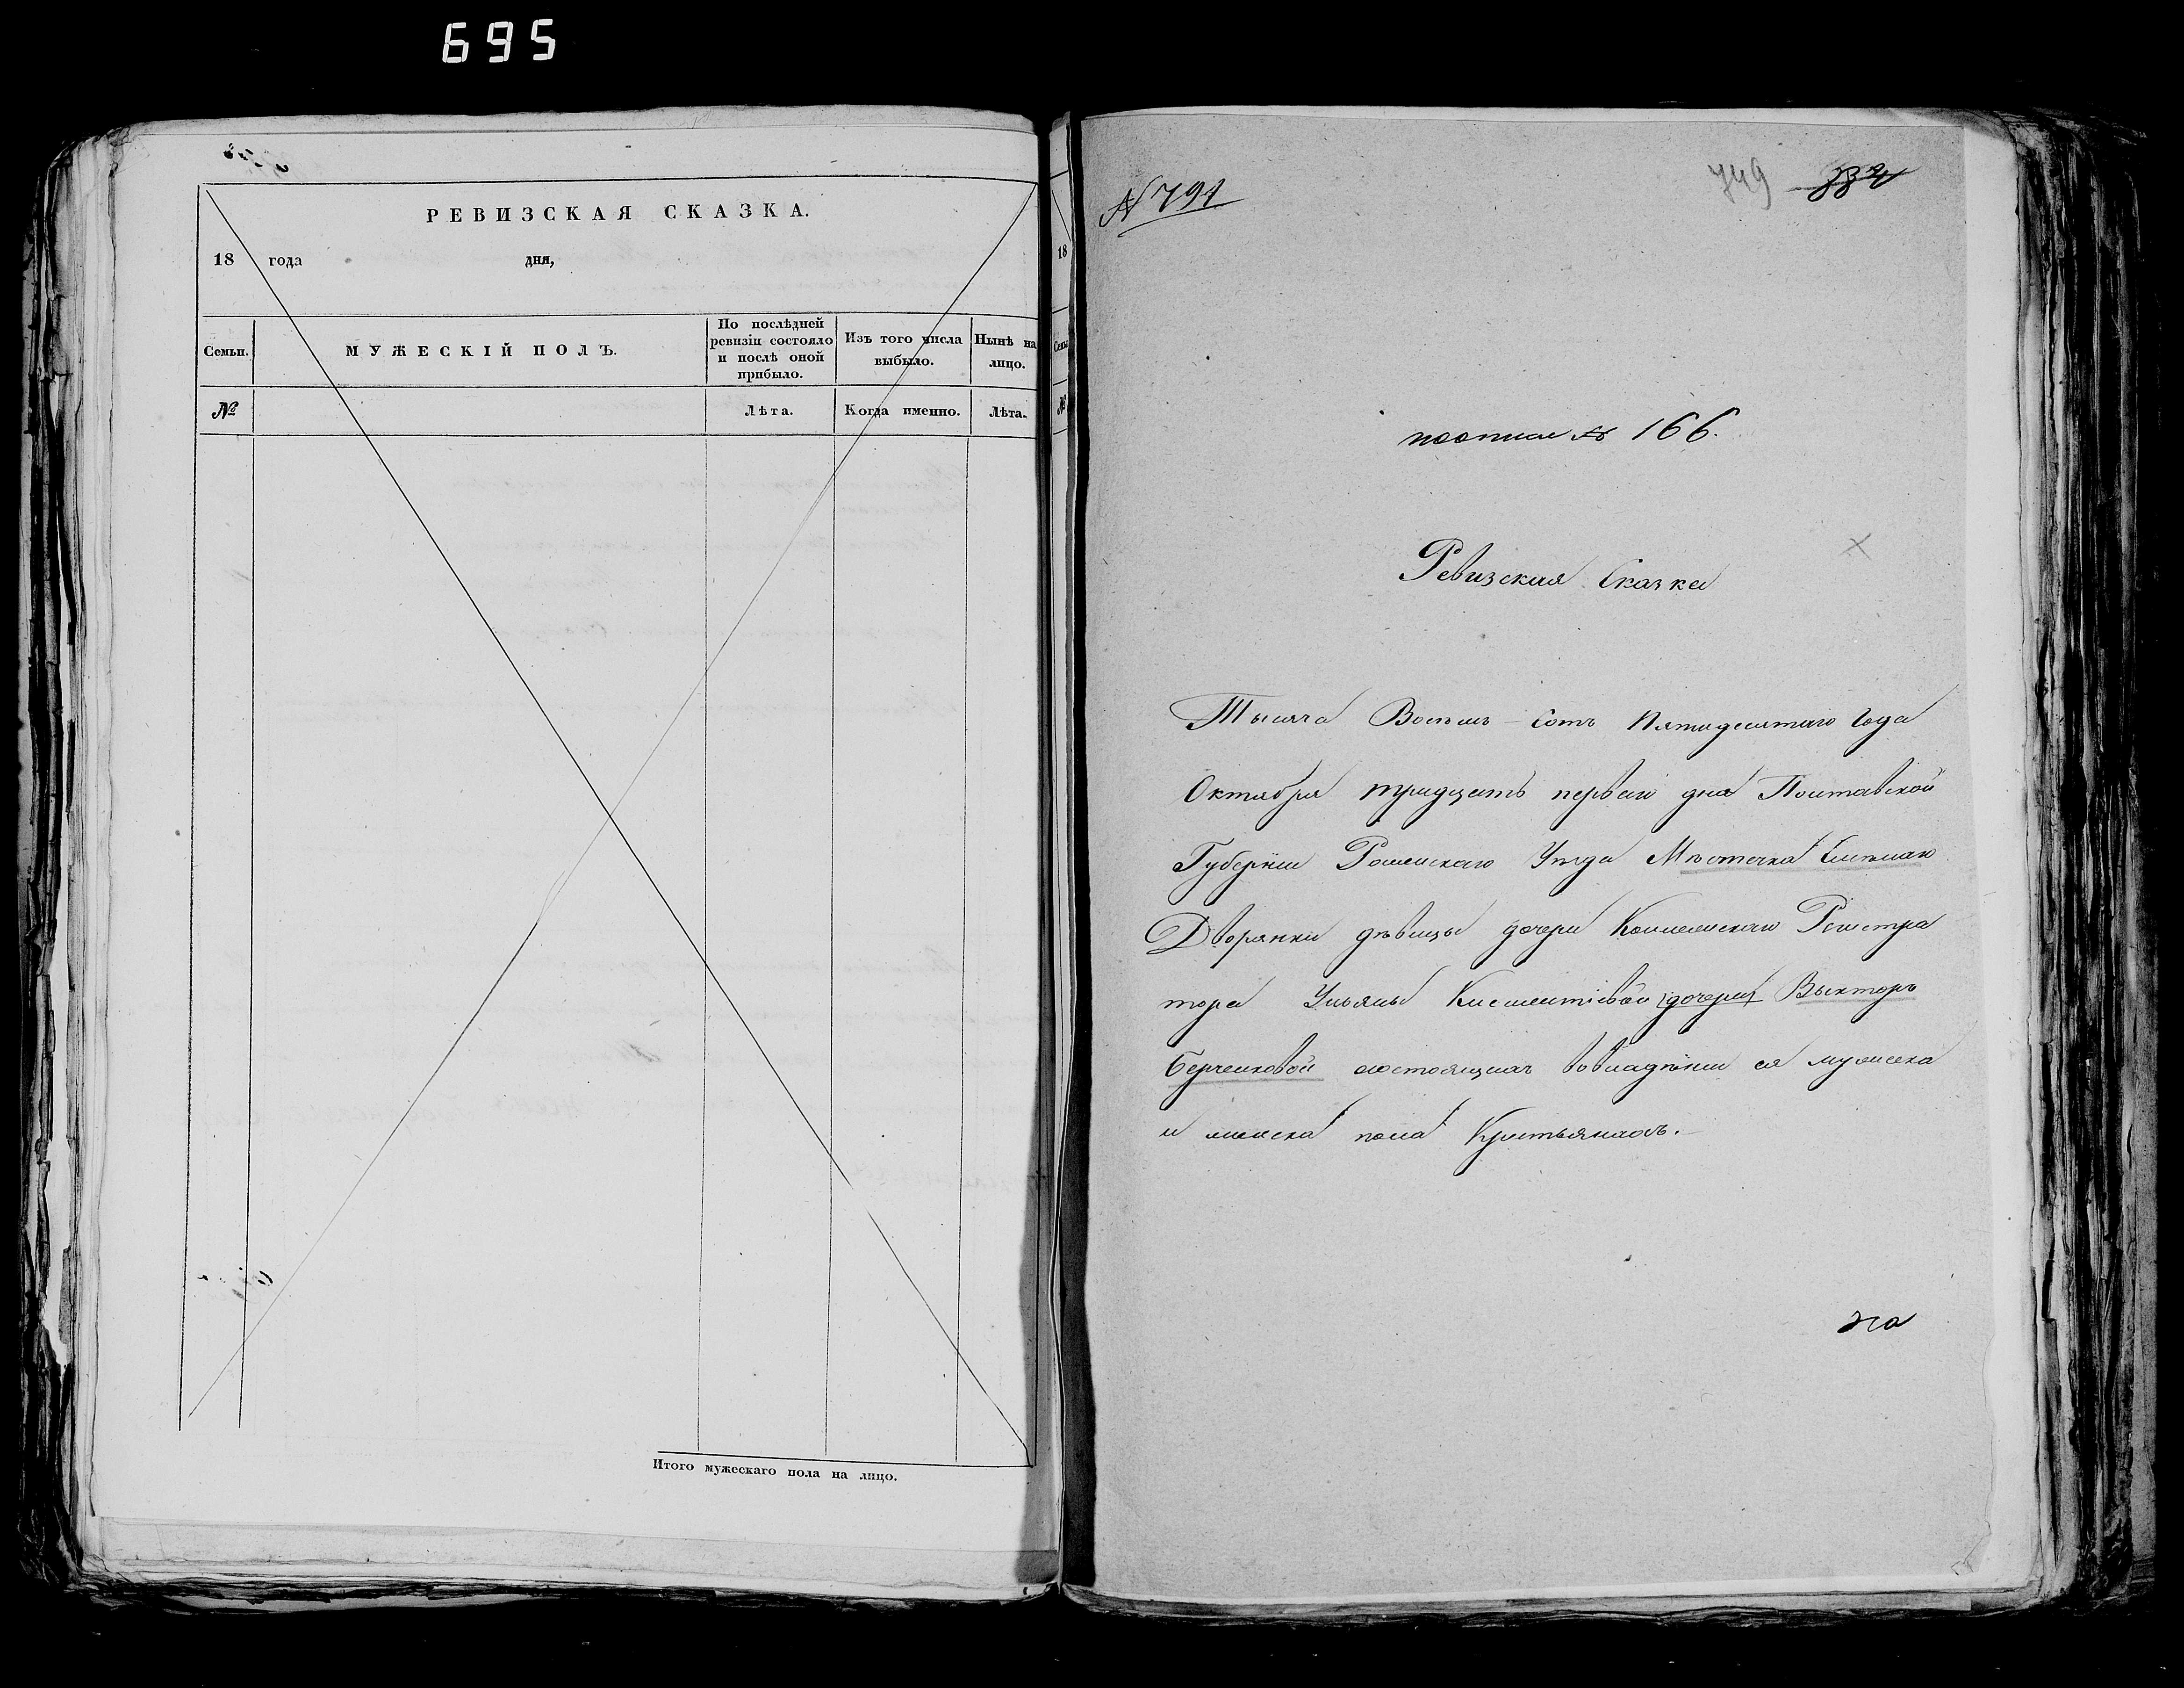 695
РЕВИЗСКАЯ СКАЗКА.
18 года дня,
Семьи.
МУЖЕСКІЙ ПОЛЪ.
По послѣдней ревизіи состояло и послѣ оной прибыло.
Изъ того числа выбыло.
Нынѣ на лицо.
№
Лѣта.
Когда именно.
Лѣта.
Итого мужескаго пола на лицо.
18
№
N 791
749
поописи № 166.
Ревизская Сказка
Тысяча Восемь-сотъ Пятидесятаго Года
Октября тридцать перваго дня Полтавской
Губернии Роменскаго Уѣзда Мѣстечка
Дворянки дѣвицы дочери Коллежскаго Регистра
тора Ульяны дочери Выкторъ
Берченковой состоящихъ вовладѣнии ея мужеска
и женска пола Крестьянахъ.